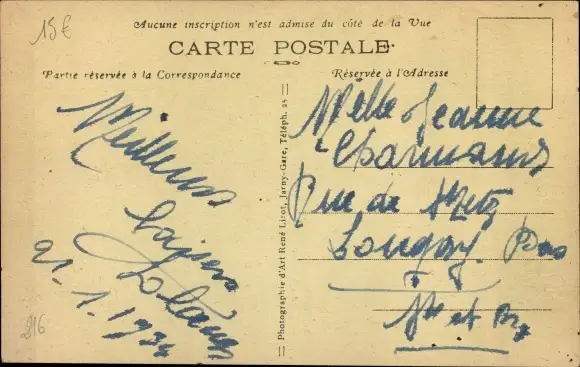 15€
Aucune inscription n'est admise du côté de la Vue
CARTE POSTALE
Partie réservée à la Correspondance
Réservée à l'Adresse
Meilleurs
21.1.1934
216
Photographie d'Art René Lirot, Jarny-Gare, Téléph. 25
Melle Jeanne
Rue de Metz
Longwy Bas